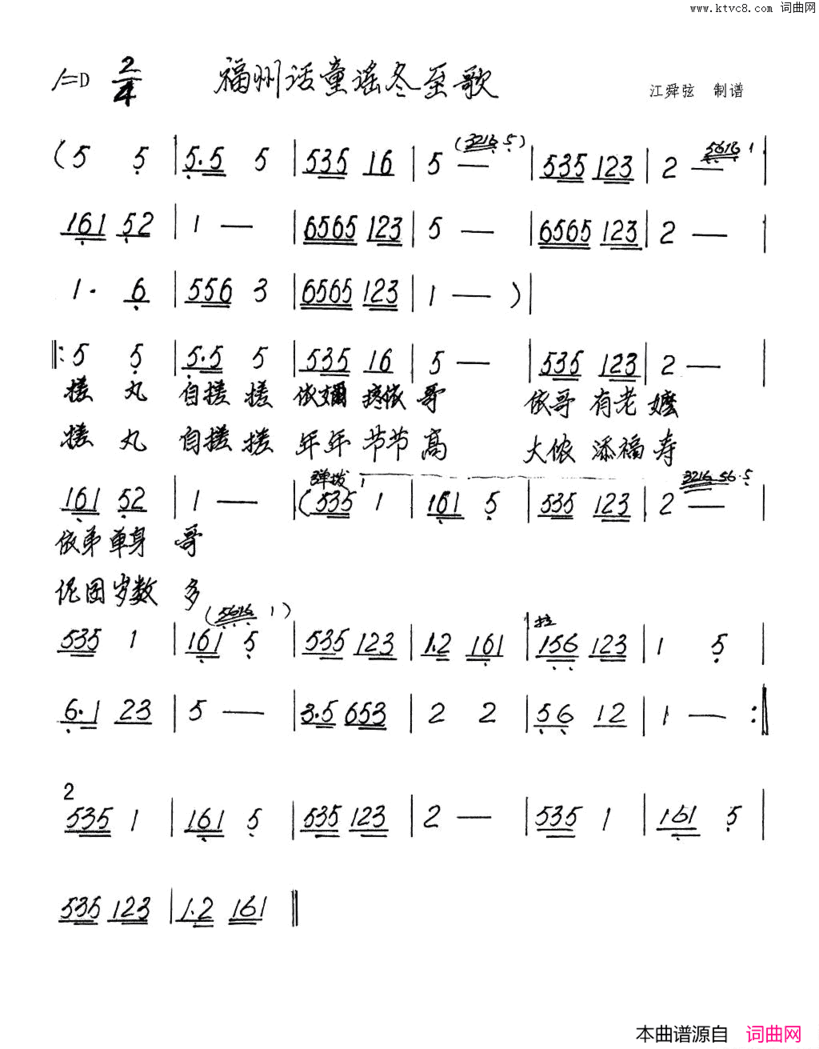 www.ktvc8.com 词曲网
1=D 2/4 福州话童谣冬至歌
江舜弦 制谱
(3216 5)
5616 1
( 5 5 | 5·5 5 | 535 16 | 5 — | 535 123 | 2 — |
161 52 | 1 — | 6565 123 | 5 — | 6565 123 | 2 — |
1· 6 | 556 3 | 6565 123 | 1 — ) |
‖: 5 5 | 5·5 5 | 535 16 | 5 — | 535 123 | 2 —
搓 丸 自搓 搓 依 疼依 哥 依哥 有老 嬷
搓 丸 自搓 搓 年年 节节 高 大侬 添福 寿
弹拨 1
3216 56·5
161 52 | 1 — | ( 535 1 | 161 5 | 535 123 | 2 — |
依弟 单身 哥
伲囝 岁数 多
(5616 1)
拉
535 1 | 161 5 | 535 123 | 1.2 161 | 156 123 | 1 5 |
6·1 23 | 5 — | 3·5 653 | 2 2 | 56 12 | 1 — :‖
2
535 1 | 161 5 | 535 123 | 2 — | 535 1 | 161 5 |
535 123 | 1.2 161 ‖
本曲谱源自 词曲网